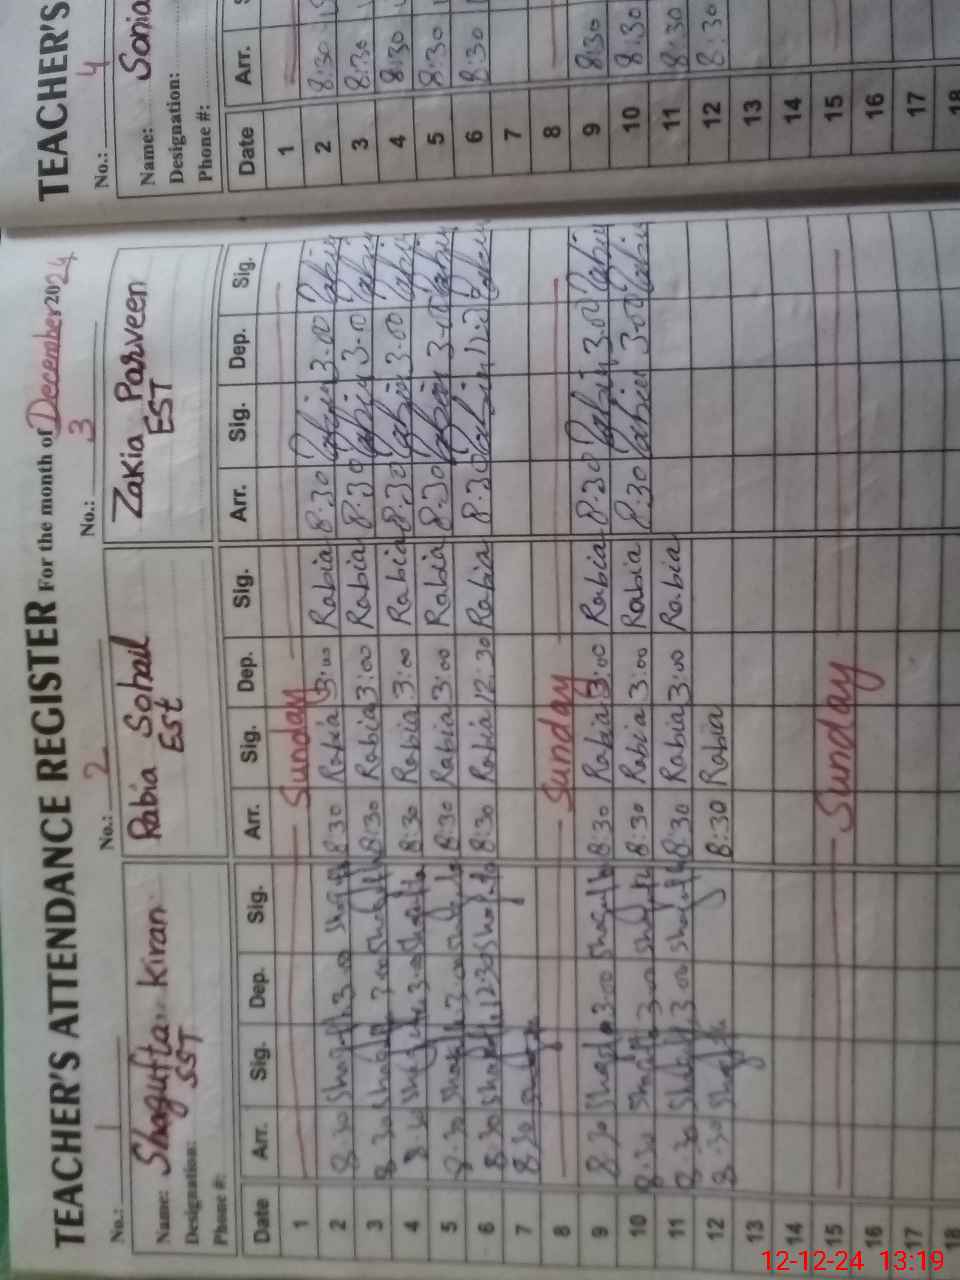 TEACHER'S ATTENDANCE REGISTER For the month of December 2024
No.: 1 No.: 2 No.: 3
Name: Shagufta Kiran Rabia Sohail Zakia Parveen
Designation: SST Est EST
Phone #:
Date Arr. Sig. Dep. Sig. Arr. Sig. Dep. Sig. Arr. Sig. Dep. Sig.
1 Sunday
2 8:30 Shagufta 3:00 Shagufta 8:30 Rabia 3:00 Rabia 8:30 3:00
3 8:30 Shagufta 3:00 Shagufta 8:30 Rabia 3:00 Rabia 8:30 3:00
4 8:30 Shagufta 3:00 Shagufta 8:30 Rabia 3:00 Rabia 8:30 3:00
5 8:30 Shagufta 3:00 Shagufta 8:30 Rabia 3:00 Rabia 8:30 3:00
6 8:30 Shagufta 12:30 Shagufta 8:30 Rabia 12:30 Rabia 8:30
7 8:30 Shagufta
8 Sunday
9 8:30 Shagufta 3:00 Shagufta 8:30 Rabia 3:00 Rabia 8:30 3:00
10 8:30 Shagufta 3:00 Shagufta 8:30 Rabia 3:00 Rabia 8:30 3:00
11 8:30 Shagufta 3:00 Shagufta 8:30 Rabia 3:00 Rabia
12 8:30 Shagufta 8:30 Rabia
13
14
15 Sunday
16
17
18
TEACHER'S
No.: 4
Name: Sonia
Designation:
Phone #:
Date Arr.
1
2 8:30
3 8:30
4 8:30
5 8:30
6 8:30
7
8
9 8:30
10 8:30
11 8:30
12 8:30
13
14
15
16
17
18
12-12-24 13:19